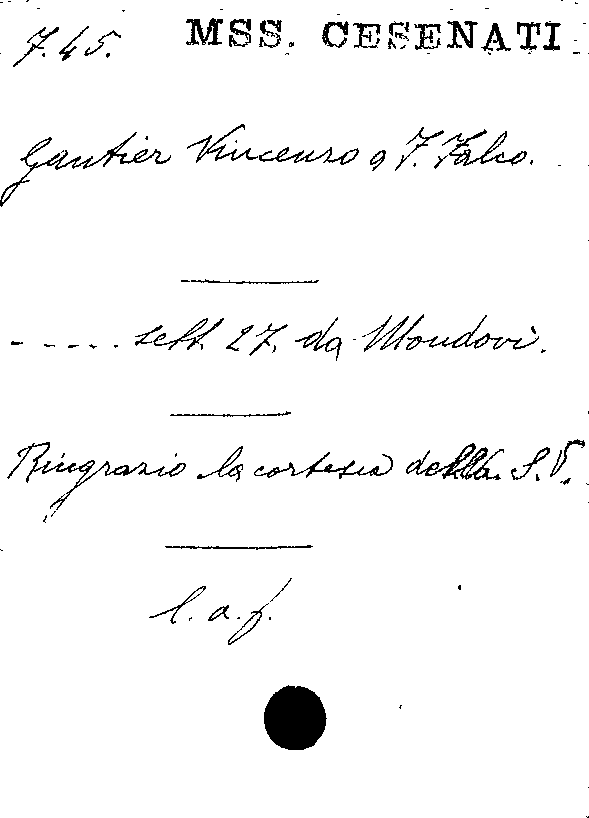 7.45. MSS. CESENATI
Gautier Vincenzo a F. Falco.
- - - - - sett. 27, da Mondovì.
Ringrazio la cortesia della S.V.
l. a. f.